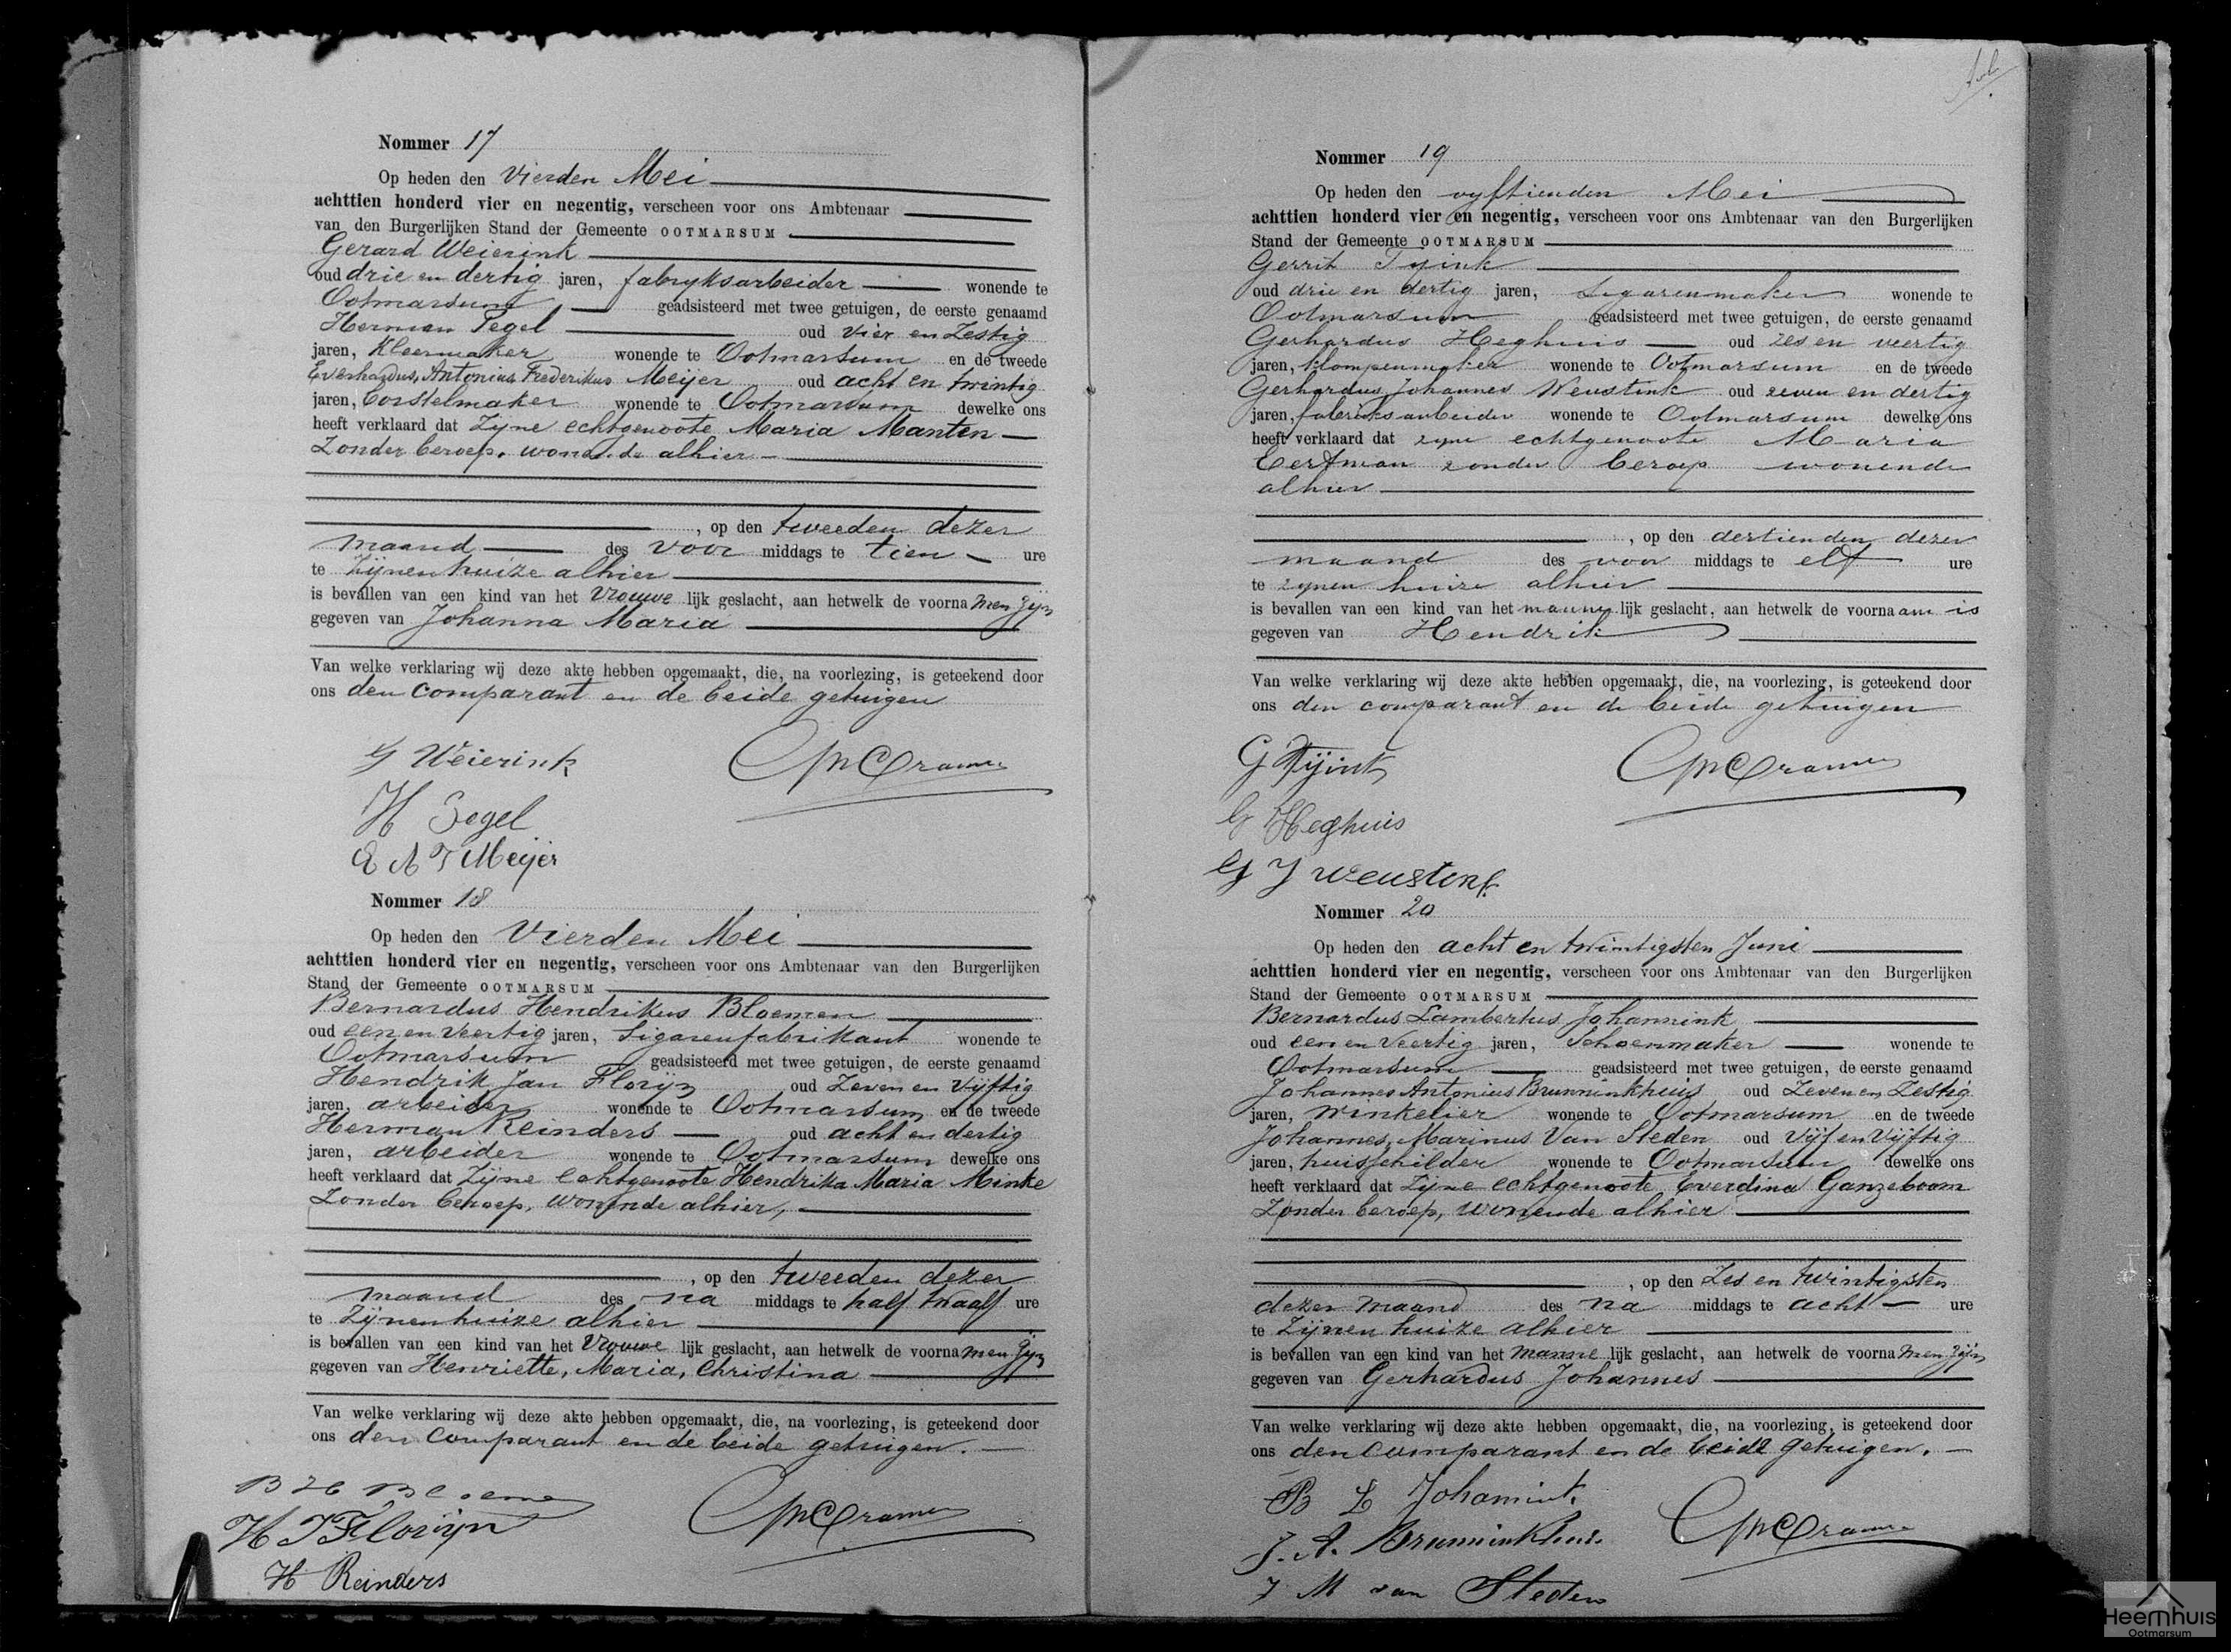 Nommer 17
Op heden den Vierden Mei
achttien honderd vier en negentig, verscheen voor ons Ambtenaar
van den Burgerlijken Stand der Gemeente OOTMARSUM
Gerard Weierink
oud drie en dertig jaren, fabryksarbeider wonende te
Ootmarsum geadsisteerd met twee getuigen, de eerste genaamd
Herman Pegel oud vier en Zestig
jaren, Kleermaker wonende te Ootmarsum en de tweede
Everhardus, Antonius Frederikus Meijer oud acht en twintig
jaren, borstelmaker wonende te Ootmarsum dewelke ons
heeft verklaard dat Zijne echtgenoote Maria Manten
Zonder beroep, wonende alhier
, op den tweeden dezer
maand des voor middags te tien ure
te Zijnen huize alhier
is bevallen van een kind van het Vrouwe lijk geslacht, aan hetwelk de voorna men zijn
gegeven van Johanna Maria
Van welke verklaring wij deze akte hebben opgemaakt, die, na voorlezing, is geteekend door
ons den comparant en de beide getuigen
G Weierink
H Segel
E A F Meijer
Nommer 18
Op heden den Vierden Mei
achttien honderd vier en negentig, verscheen voor ons Ambtenaar van den Burgerlijken
Stand der Gemeente OOTMARSUM
Bernardus Hendrikus Bloemen
oud een en Veertig jaren, Sigarenfabrikant wonende te
Ootmarsum geadsisteerd met twee getuigen, de eerste genaamd
Hendrik Jan Florijn oud Zeven en Vijftig
jaren, arbeider wonende te Ootmarsum en de tweede
Herman Reinders oud acht en dertig
jaren, arbeider wonende te Ootmarsum dewelke ons
heeft verklaard dat Zijne Echtgenoote Hendrika Maria Minke
Zonder beroep, wonende alhier,
, op den tweeden dezer
maand des na middags te half twaalf ure
te Zijnen huize alhier
is bevallen van een kind van het Vrouwe lijk geslacht, aan hetwelk de voorna men zijn
gegeven van Henriette, Maria, Christina
Van welke verklaring wij deze akte hebben opgemaakt, die, na voorlezing, is geteekend door
ons den comparant en de beide getuigen.
B H Bloemen
H J Florijn
H Reinders
Nommer 19
Op heden den vyftienden Mei
achttien honderd vier en negentig, verscheen voor ons Ambtenaar van den Burgerlijken
Stand der Gemeente OOTMARSUM
Gerrit Tyink
oud drie en dertig jaren, Sigarenmaker wonende te
Ootmarsum geadsisteerd met twee getuigen, de eerste genaamd
Gerhardus Heghuis oud zes en veertig
jaren, klompenmaker wonende te Ootmarsum en de tweede
Gerhardus Johannes Weustink oud zeven en dertig
jaren, fabrieksarbeider wonende te Ootmarsum dewelke ons
heeft verklaard dat zyne echtgenoote Maria
zonder beroep wonende
alhier
, op den dertienden dezer
maand des voor middags te elf ure
te zynen huize alhier
is bevallen van een kind van het manne lijk geslacht, aan hetwelk de voorna am is
gegeven van Hendrik
Van welke verklaring wij deze akte hebben opgemaakt, die, na voorlezing, is geteekend door
ons den comparant en de beide getuigen
G Tijink
G Heghuis
G J Weustink
Nommer 20
Op heden den acht en twintigsten Juni
achttien honderd vier en negentig, verscheen voor ons Ambtenaar van den Burgerlijken
Stand der Gemeente OOTMARSUM
Bernardus Lambertus Johannink
oud een en Veertig jaren, Schoenmaker wonende te
Ootmarsum geadsisteerd met twee getuigen, de eerste genaamd
Johannes Antonius Brunninkhuis oud Zeven en Zestig
jaren, winkelier wonende te Ootmarsum en de tweede
Johannes, Marinus Van Steden oud Vijf en Vijftig
jaren, huisschilder wonende te Ootmarsum dewelke ons
heeft verklaard dat Zijne echtgenoote Everdina Ganzeboom
Zonder beroep, wonende alhier
, op den Zes en twintigsten
dezer maand des na middags te acht ure
te Zijnen huize alhier
is bevallen van een kind van het manne lijk geslacht, aan hetwelk de voorna men zijn
gegeven van Gerhardus Johannes
Van welke verklaring wij deze akte hebben opgemaakt, die, na voorlezing, is geteekend door
ons den comparant en de beide getuigen.
B L Johannink
J. A. Brunninkhuis
J M van Steden
Heemhuis
Ootmarsum